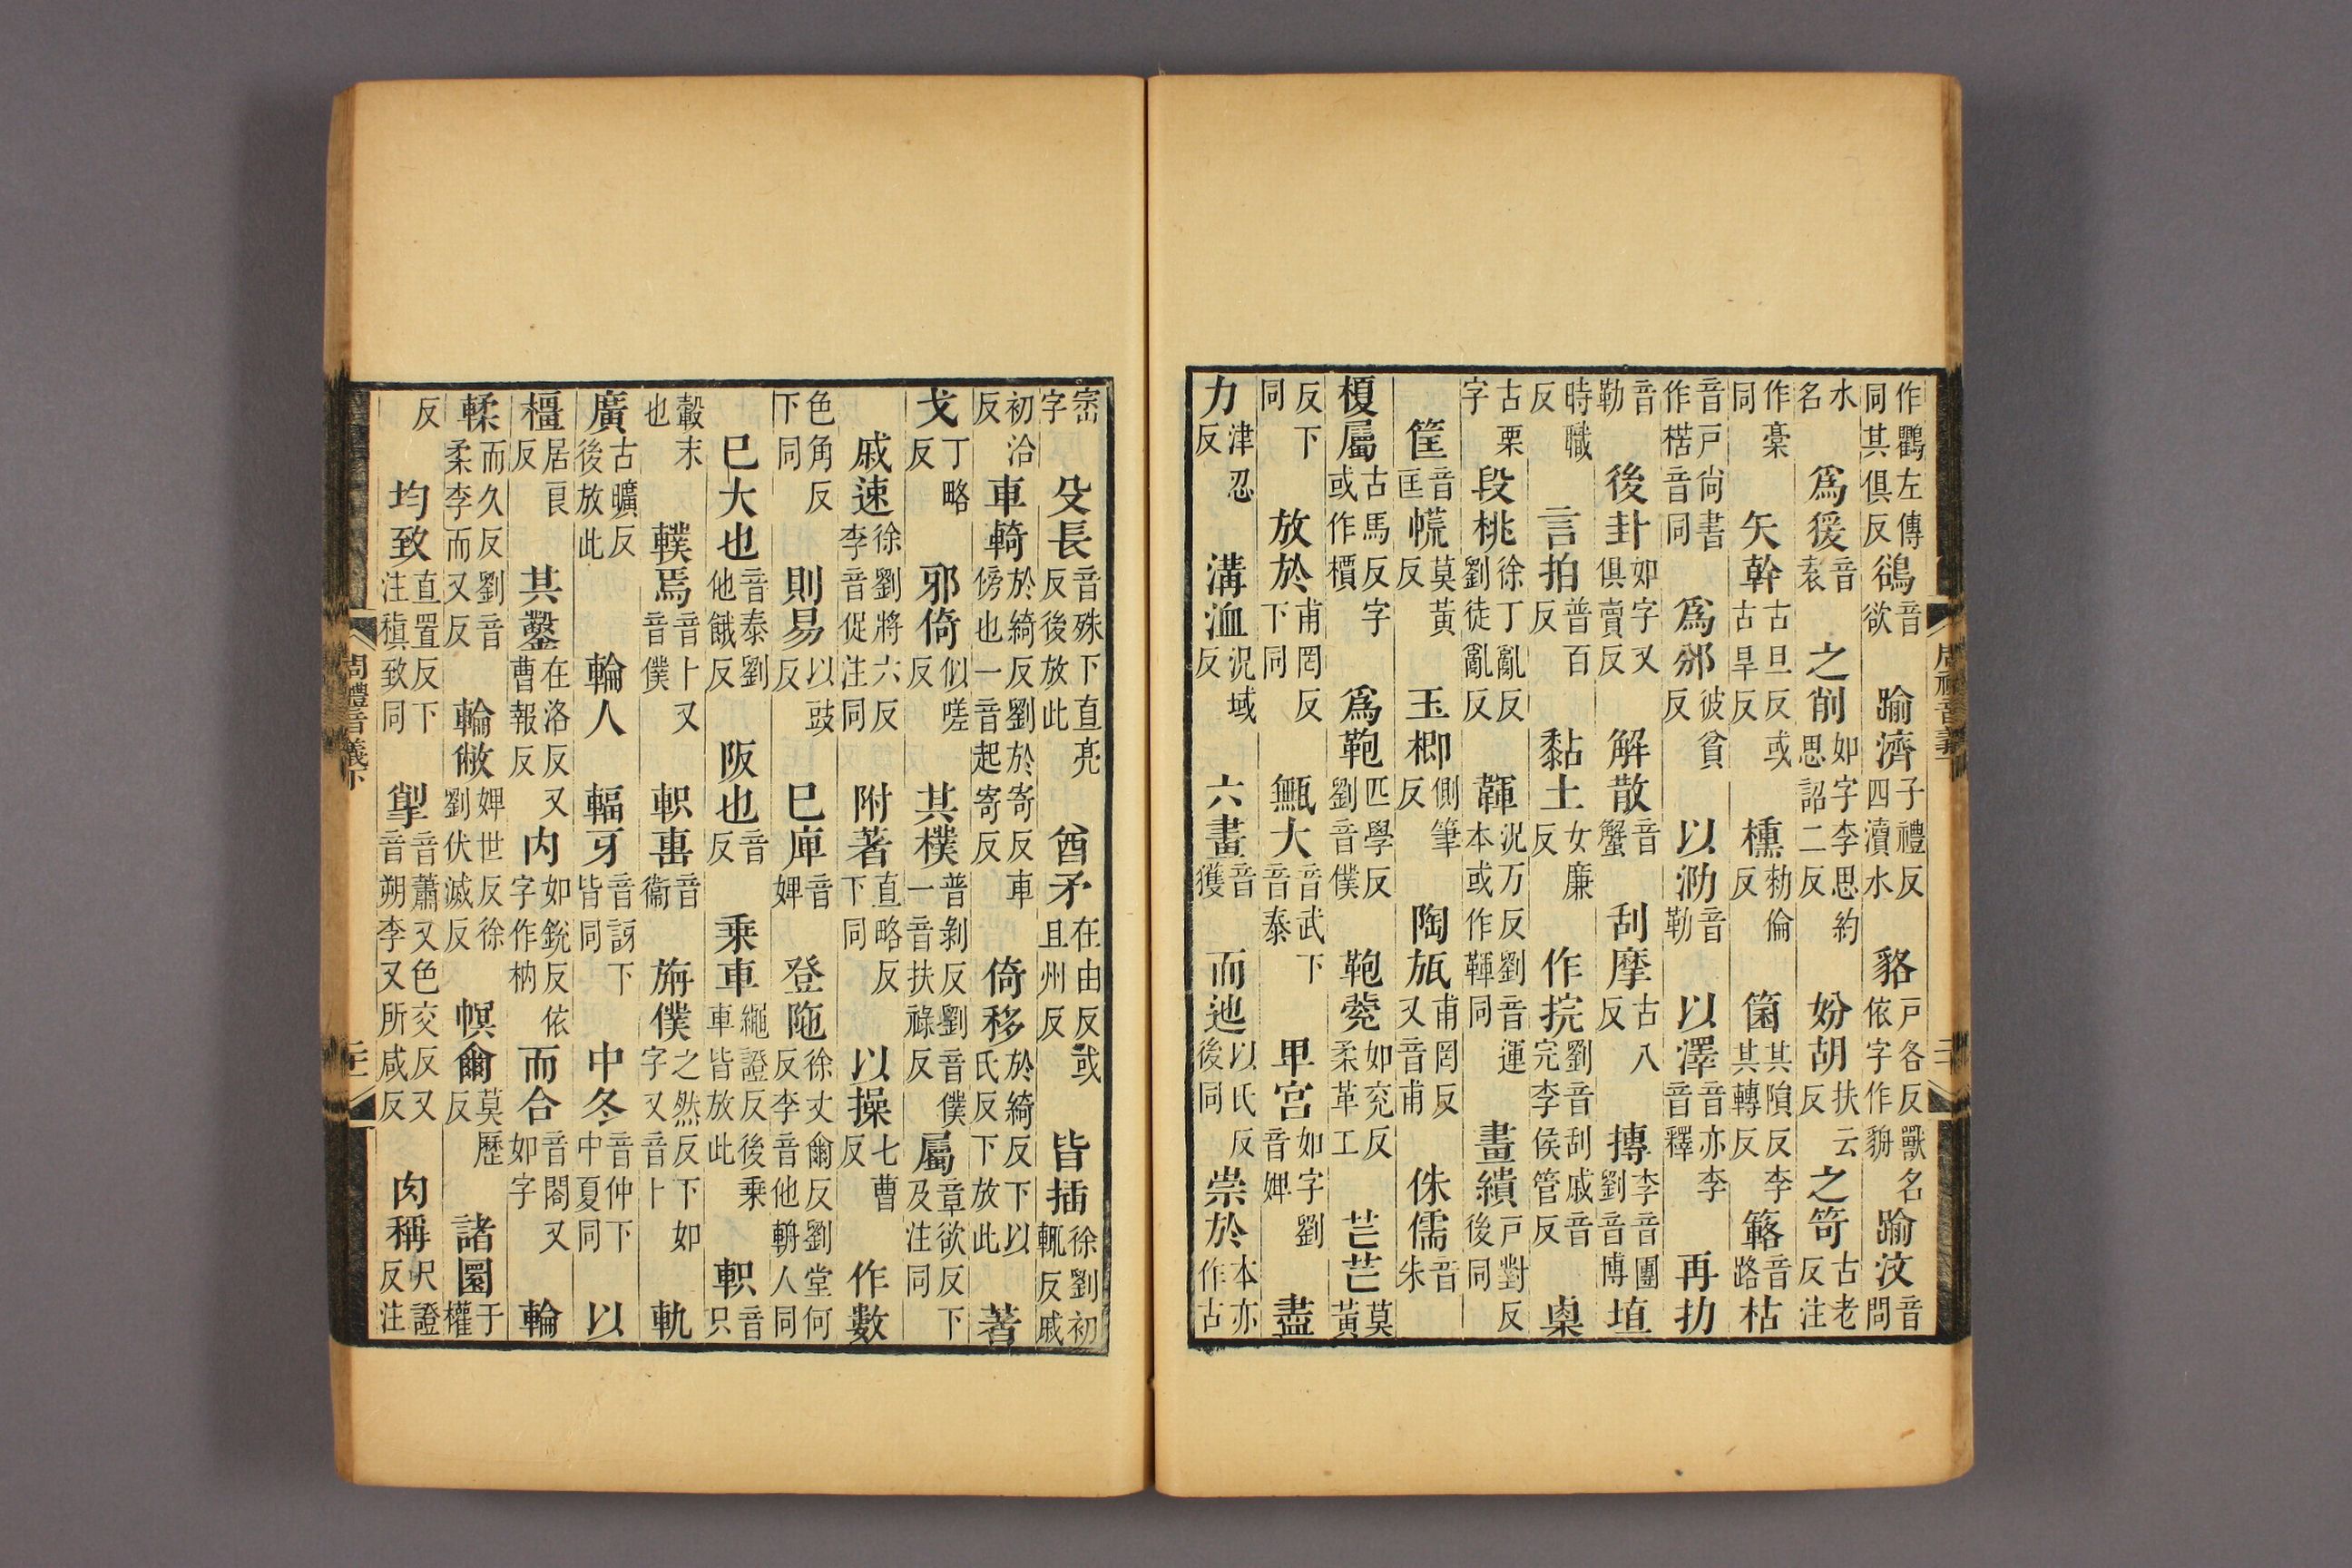 作鸜左傳同其俱反鵒音欲 踰濟子禮反四瀆水 貉戶各反獸名依字作貈 踰汶音問
水名 爲猨音袁 之削如字李思約思詔二反 妢胡扶云反 之笴古老反注
作槀同 矢幹古旦反或古旱反 櫄勑倫反 箘其隕反李其轉反 簬音路 枯
音戶尚書作楛音同 爲邠彼貧反 以泐音勒 以澤音亦李音釋 再扐
音勒 後卦如字又俱賣反 解散音蟹 刮摩古八反 摶李音團劉音博 埴
時職反 言拍普百反 黏土女廉反 作捖劉音刮戚音完李侯管反 㮚
古栗字 段桃徐丁亂反劉徒亂反 韗況万反劉音運本或作𩋾同 畫繢戶對反後同
筐音匡 㡛莫黃反 玉楖側筆反 陶瓬甫罔反又音甫 侏儒音朱
榎屬古馬反字或作檟 爲鞄匹學反劉音僕 鞄㼱如兗反柔革工 芒芒莫黃
反下同 放於甫罔反下同 甒大音武下音泰 卑宮如字劉音婢 盡
力津忍反 溝洫況域反 六畫音獲 而迆以氏反後同 崇於本亦作古
崈字 殳長音殊下直亮反後放此 酋矛在由反或且州反 皆插徐劉初輒反戚
初洽反 車輢於綺反劉於寄反車傍也一音起寄反 倚移於綺反下以氏反下放此 著
戈丁略反 邪倚似嗟反 其樸普剝反劉音僕一音扶祿反 屬章欲反下及注同
戚速徐劉將六反李音促注同 附著直略反下同 以操七曹反 作數
色角反下同 則易以豉反 巳庳音婢 登阤徐丈爾反劉堂何反李音他輈人同
巳大也音泰劉他餓反 阪也音反 乗車繩證反後乗車皆放此 軹音只
轂末也 轐焉音卜又音僕 軹軎音衞 旃僕之然反下如字又音卜 軌
廣古曠反後放此 輪人 輻牙音訝下皆同 中冬音仲下中夏同 以
橿居良反 其鑿在洛反又曹報反 内如銳反依字作枘 而合音閤又如字 輪
輮而久反劉音柔李而又反 輪敝婢世反徐劉伏滅反 幎爾莫歷反 諸圜于權
反 均致直置反下注稹致同 掣音蕭又色交反又音朔李又所咸反 肉稱尺證反注
周禮音義下